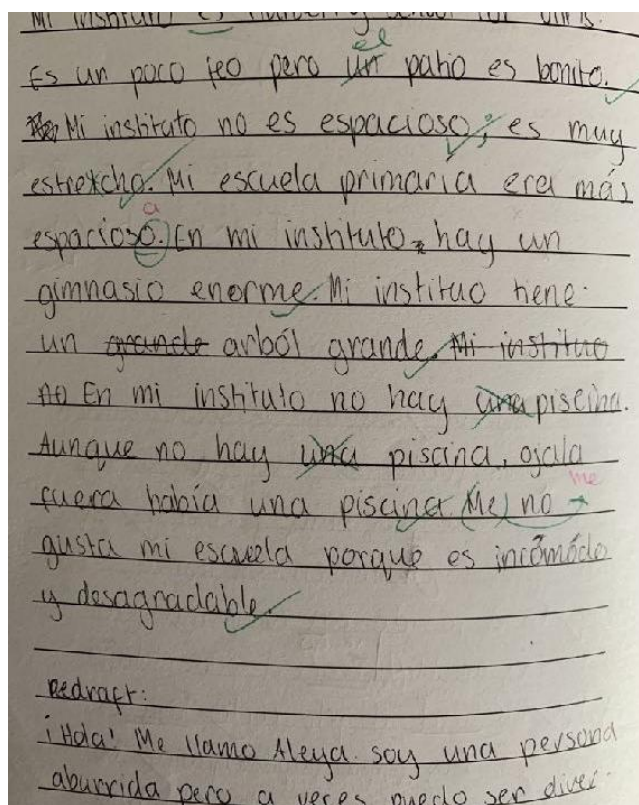 Mi instituto es
el
Es un poco feo pero un patio es bonito.
Mi instituto no es espacioso; es muy
estrexcho. Mi escuela primaria era más
a
espacioso. En mi instituto hay un
gimnasio enorme. Mi instituo tiene
un grande arból grande. Mi instituo
no En mi instituto no hay una piscina.
Aunque no hay una piscina, ojala
me
fuera había una piscina. (Me) no
gusta mi escuela porque es incómódo
y desagradable.
Redraft:
¡Hola! Me llamo Aleya. soy una persona
aburrida pero a veces puedo ser diver